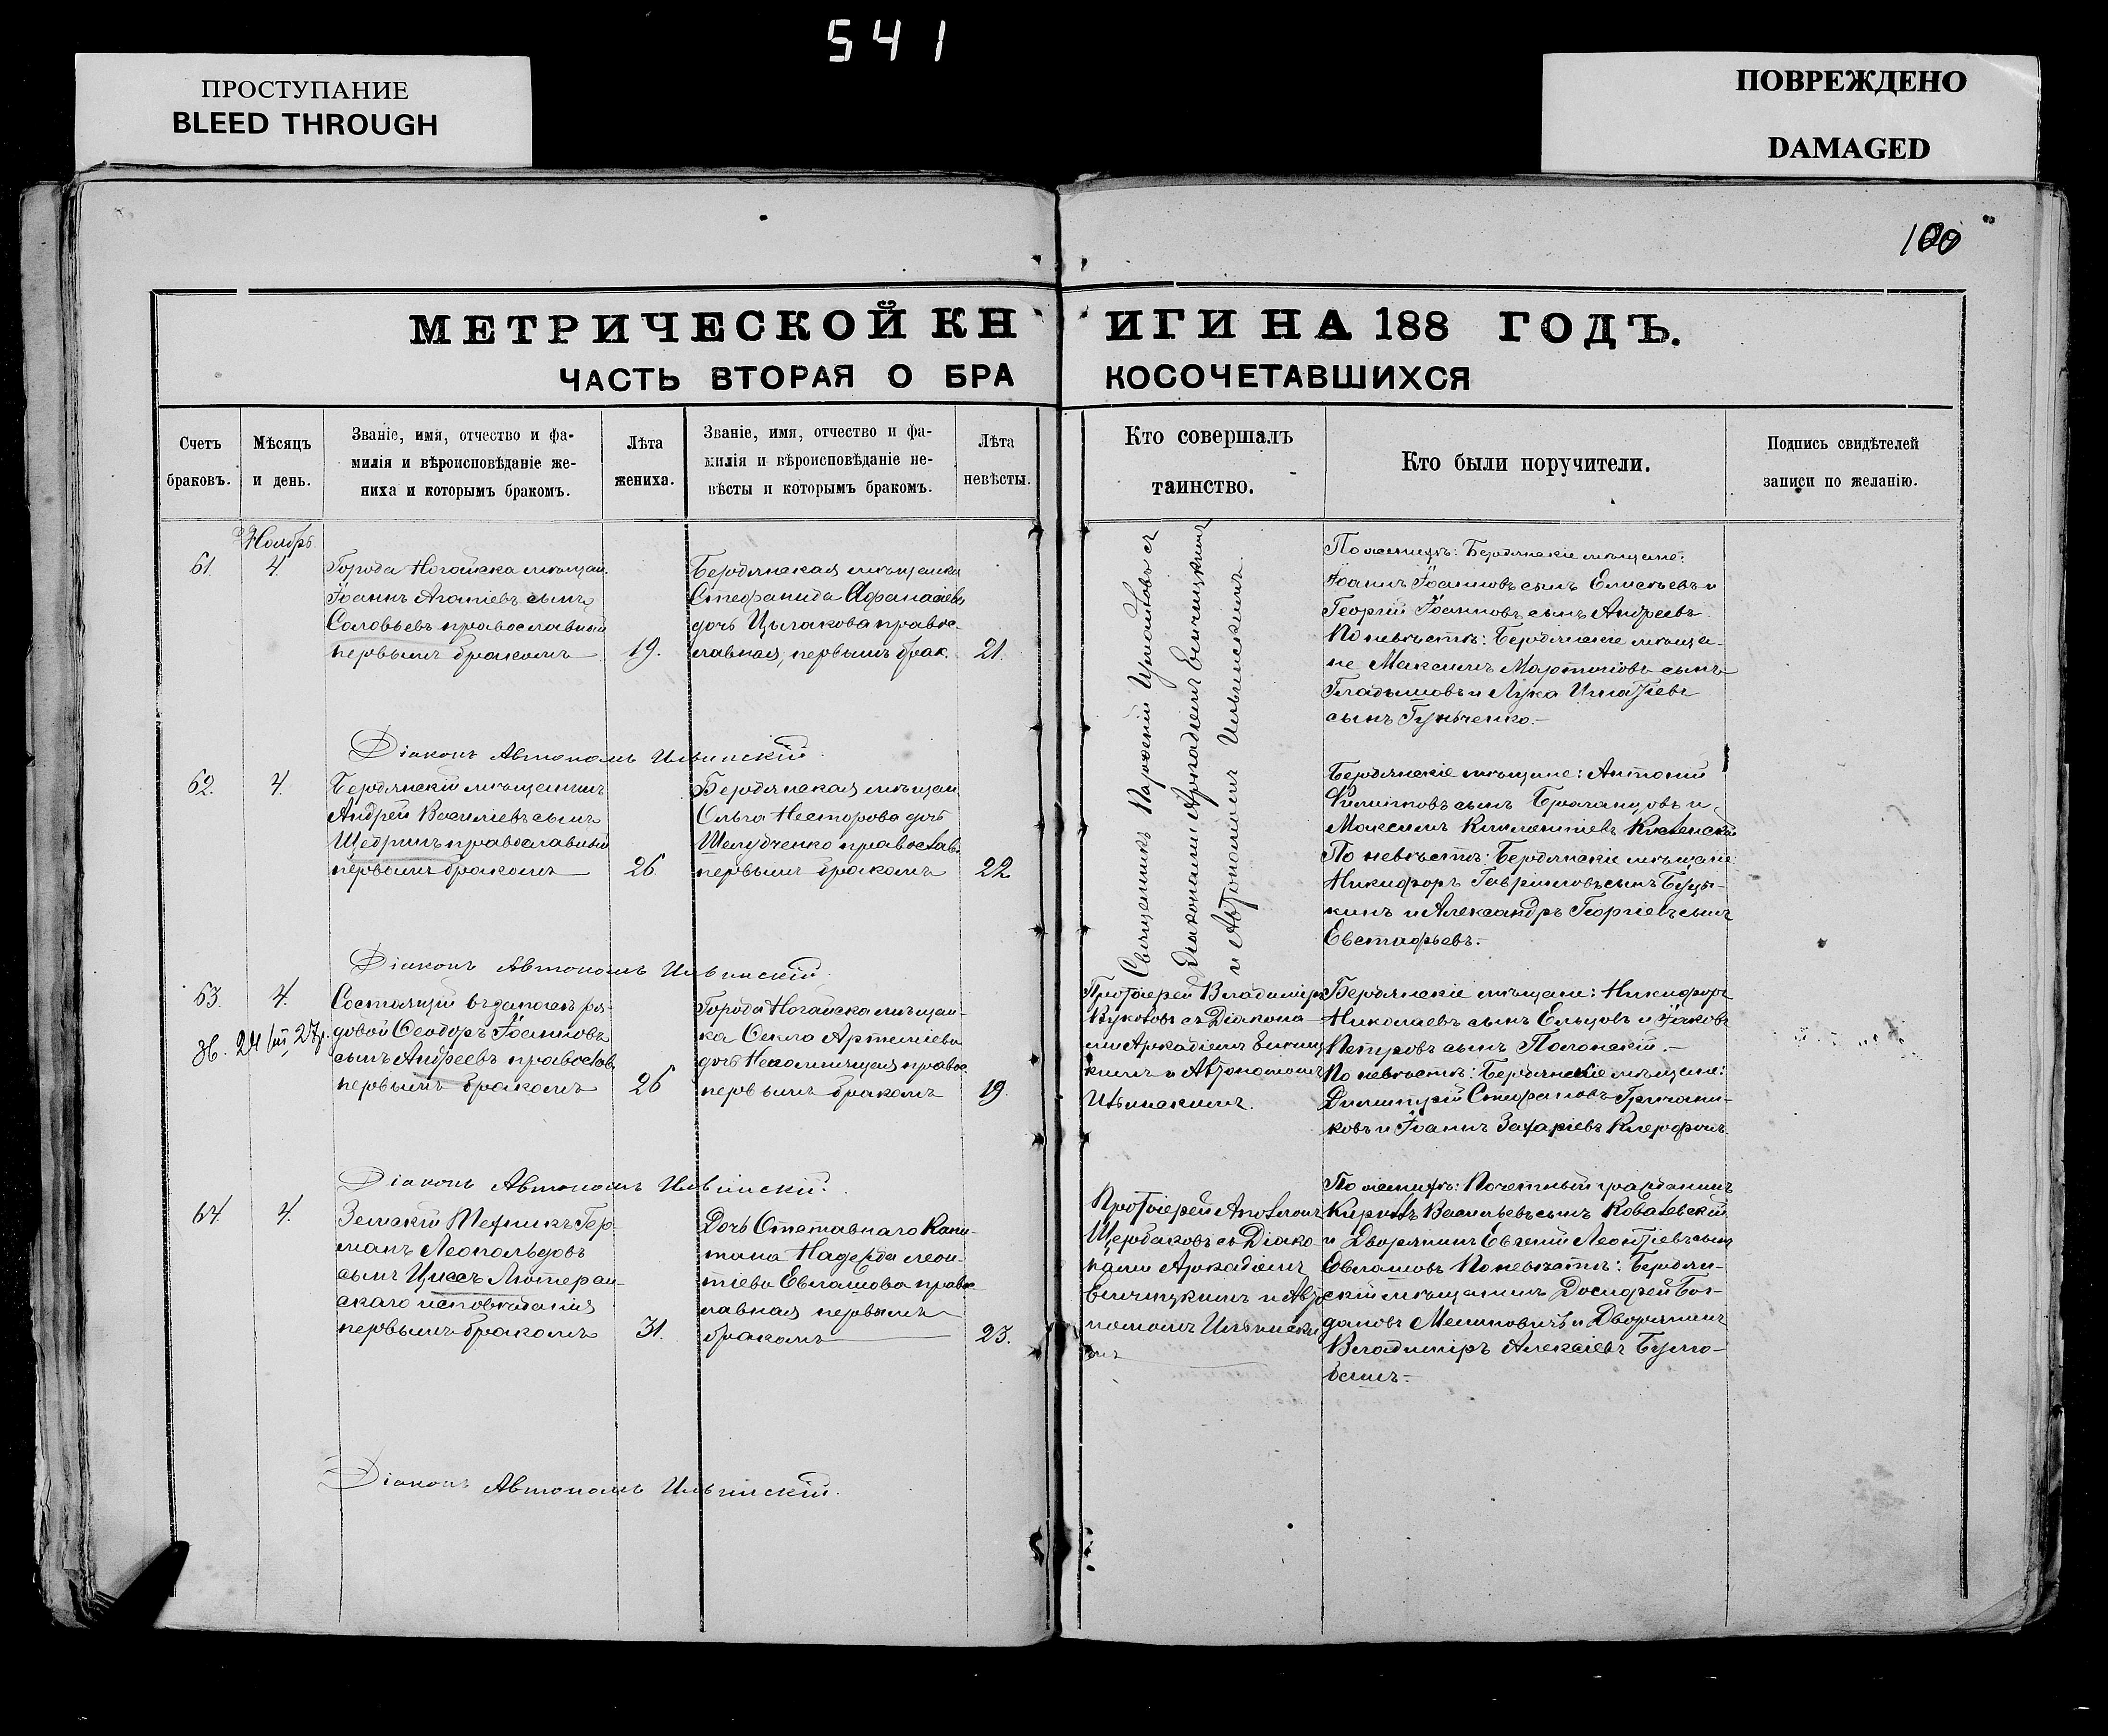 541
ПРОСТУПАНИЕ
BLEED THROUGH
ПОВРЕЖДЕНО
DAMAGED
МЕТРИЧЕСКОЙ КНИГИ НА 188 ГОДЪ.
ЧАСТЬ ВТОРАЯ О БРАКОСОЧЕТАВШИХСЯ
Счетъ
браковъ.
Мѣсяцъ
и день.
Званіе, имя, отчество и фа-
милія и вѣроисповѣданіе же-
ниха и которымъ бракомъ.
Лѣта
жениха.
Званіе, имя, отчество и фа-
милія и вѣроисповѣданіе не-
вѣсты и которымъ бракомъ.
Лѣта
невѣсты.
Кто совершалъ
таинство.
Кто были поручители.
Подпись свидѣтелей
записи по желанію.
Ноябрь
61.
4.
Города Ногайска мѣщан.
Іоаннъ Агапіевъ сынъ
Соловьевъ православный
первымъ бракомъ
19.
Бердянская мѣщанка
Стефанида Афанасіева
дочь Цыганкова правос-
лавная, первымъ брак.
21.
Священникъ
Діаконами Аркадіемъ Винницкимъ
и Автономомъ Ильинскимъ.
По женихѣ: Бердянскіе мѣщане:
Іоаннъ Іоанновъ сынъ Елисѣевъ и
Георгій Іоанновъ сынъ Андреевъ
По невѣстѣ: Бердянскіе мѣща-
не Максимъ Мартиновъ сынъ
Гладышовъ и Лука Игнатіевъ
сынъ
Діаконъ Автономъ Ильинскій.
62.
4.
Бердянскій мѣщанинъ
Андрей Василіевъ сынъ
Щедринъ православный
первымъ бракомъ
26
Бердянская мѣщан.
Ольга Несторова дочь
Шелудченко православ.
первымъ бракомъ
22
Бердянскіе мѣщане: Антоній
Филиповъ сынъ
Максимъ
По невѣстѣ: Бердянскіе мѣщане
Никифоръ Гавриловъ сынъ Буцы-
кинъ и Александръ Георгіевъ сынъ
Евстафьевъ.
Діаконъ Автономъ Ильинскій.
63.
4.
Состоящій въ запасѣ ря-
довой Ѳеодоръ Іоанновъ
сынъ Андреевъ православ.
первымъ бракомъ
26
Города Ногайска мѣщан-
ка Ѳекла Артеміева
дочь правос.
первымъ бракомъ
19.
Протоіерей Владиміръ
съ Діакона-
ми Аркадіемъ Винниц-
кимъ и Автономомъ
Ильинскимъ.
Бердянскіе мѣщане: Никифоръ
Николаевъ сынъ Ельцовъ и Іаковъ
Петровъ сынъ Полонскій.
По невѣстѣ: Бердянскіе мѣщане:
Димитрій Стефановъ
ковъ и Іоаннъ Захаріевъ
Діаконъ Автономъ Ильинскій.
64.
4.
Земскій Техникъ Гер-
манъ Леопольдовъ
сынъ Лютеран-
скаго исповѣданія
первымъ бракомъ
31.
Дочь Отставнаго Капи-
тана Надежда Леон-
тіева Евлашова правос-
лавная первымъ
бракомъ
23.
Протоіерей
Щербаковъ съ Діако-
нами Аркадіемъ
Винницкимъ и Авто-
номомъ Ильински-
мъ
По женихѣ: Почетный гражданинъ
Кириллъ Васильевъ сынъ Ковалевскій
и Дворянинъ Евгеній Леонтіевъ сынъ
Евлашовъ По невѣстѣ: Бердян-
скій мѣщанинъ Досифей Бог-
дановъ и Дворянинъ
Владиміръ Алексіевъ
Діаконъ Автономъ Ильинскій.